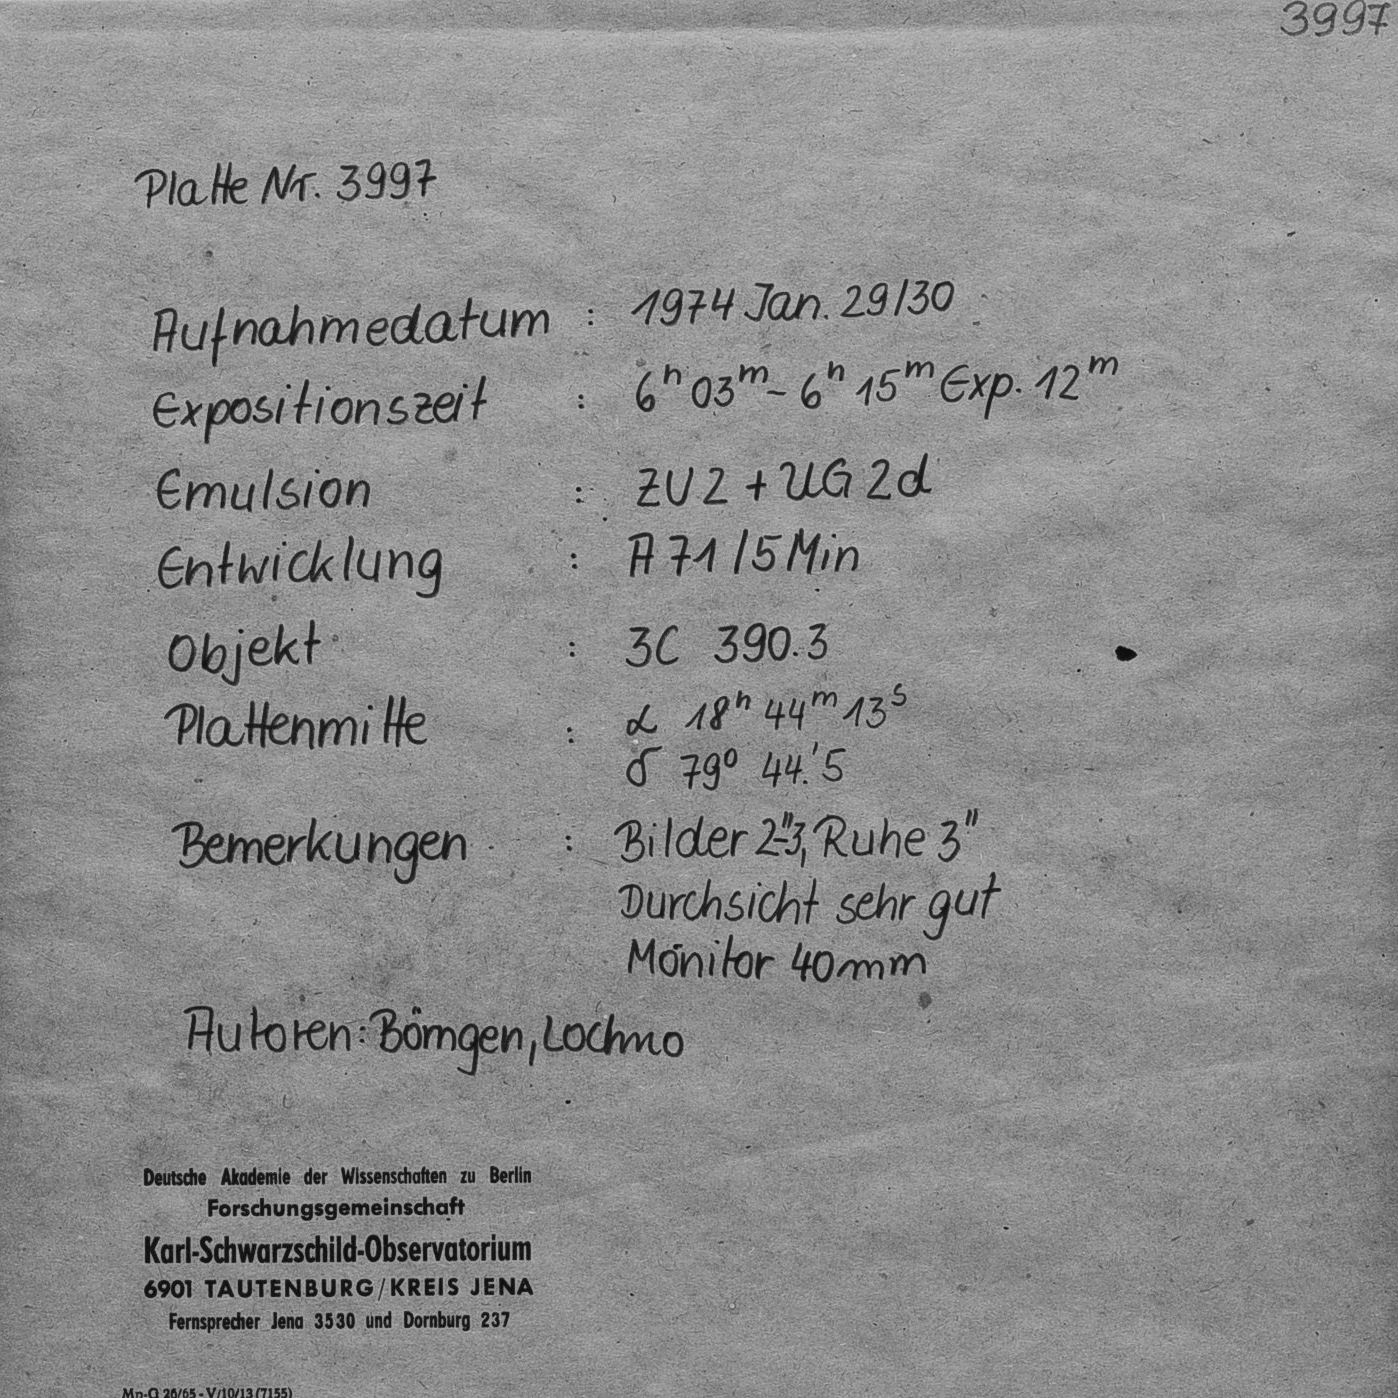 3997
Platte Nr. 3997
Aufnahmedatum : 1974 Jan. 29/30
Expositionszeit : 6h 03m - 6h 15m Exp. 12m
Emulsion : ZU 2 + UG 2d
Entwicklung : A 71 / 5 Min
Objekt : 3C 390.3
Plattenmitte : α 18h 44m 13s
δ 79° 44.'5
Bemerkungen : Bilder 2"-3, Ruhe 3"
Durchsicht sehr gut
Monitor 40mm
Autoren: Börngen, Lochno
Deutsche Akademie der Wissenschaften zu Berlin
Forschungsgemeinschaft
Karl-Schwarzschild-Observatorium
6901 TAUTENBURG/KREIS JENA
Fernsprecher Jena 3530 und Dornburg 237
Mp-O 26/65 - V/10/13 (7155)